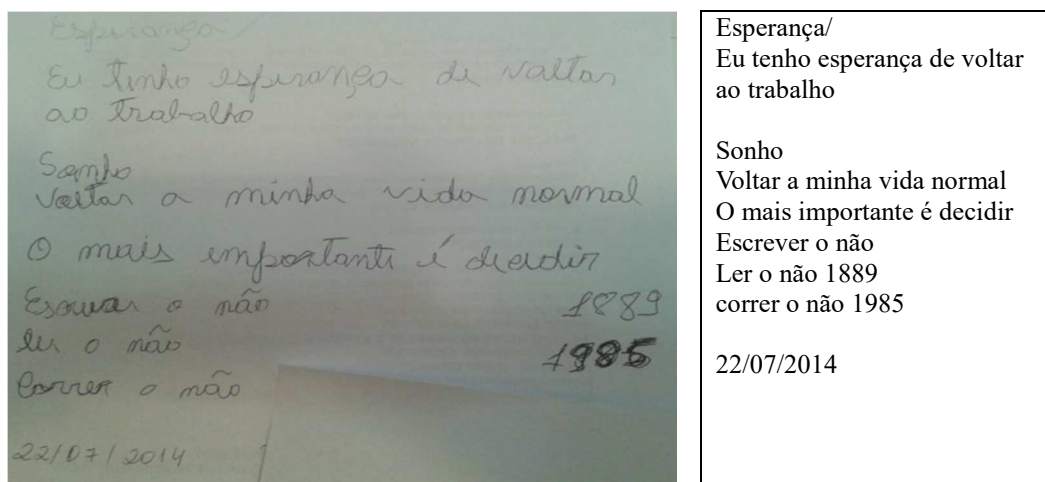 Esperança/
Eu tenho esperança de valtar
ao trabalho
Sonho
valtar a minha vida normal
O mais emportante é decidir
Escrever o não 1889
ler o não 1985
Correr o não
22/07/2014
Esperança/
Eu tenho esperança de voltar
ao trabalho
Sonho
Voltar a minha vida normal
O mais importante é decidir
Escrever o não
Ler o não 1889
correr o não 1985
22/07/2014